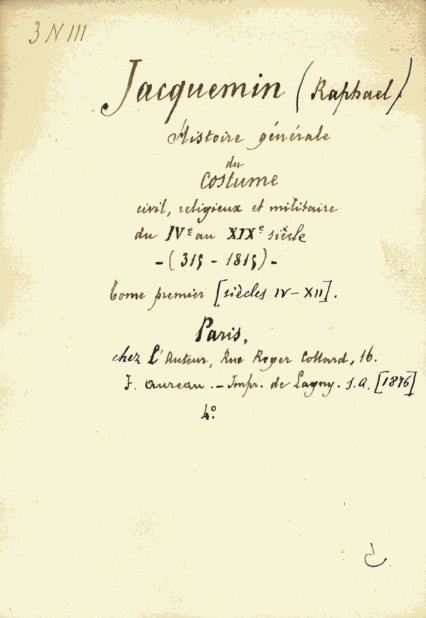 3 N III
Jacquemin (Raphael)
Histoire générale
du
Costume
civil, religieux et militaire
du IVe au XIXe siècle
-(315 - 1815)-
Tome premier [siècles IV-XII].
Paris,
chez L'Auteur, Rue Royer Collard, 16.
F. Aureau. - Impr. de Lagny. s.a. [1876]
4º